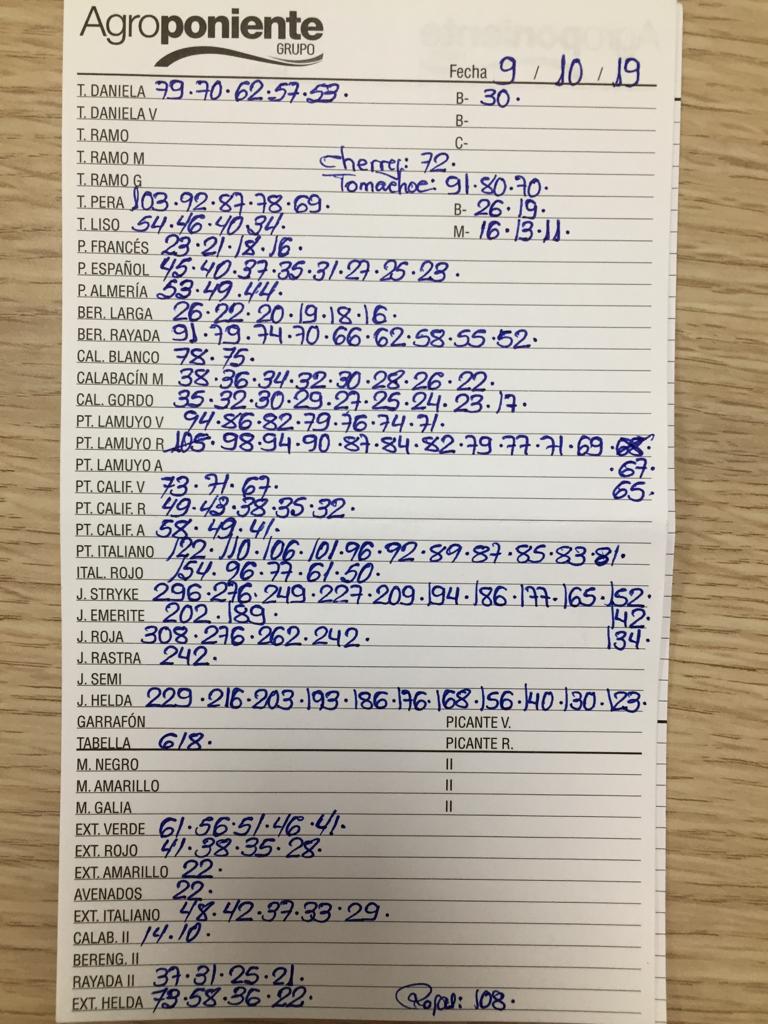 Agroponiente
GRUPO
Fecha 9 / 10 / 19
T. DANIELA 79.70.62.57.53. B- 30.
T. DANIELA V B-
T. RAMO C-
T. RAMO M Cherry: 72.
T. RAMO G Tomachoc: 91.80.70.
T. PERA 103.92.87.78.69. B- 26.19.
T. LISO 54.46.40.34. M- 16.13.11.
P. FRANCÉS 23.21.18.16.
P. ESPAÑOL 45.40.37.35.31.27.25.23.
P. ALMERÍA 53.49.44.
BER. LARGA 26.22.20.19.18.16.
BER. RAYADA 91.79.74.70.66.62.58.55.52.
CAL. BLANCO 78.75.
CALABACÍN M 38.36.34.32.30.28.26.22.
CAL. GORDO 35.32.30.29.27.25.24.23.17.
PT. LAMUYO V 94.86.82.79.76.74.71.
PT. LAMUYO R 105.98.94.90.87.84.82.79.77.71.69.68.
PT. LAMUYO A .67.
PT. CALIF. V 73.71.67. 65.
PT. CALIF. R 49.43.38.35.32.
PT. CALIF. A 58.49.41.
PT. ITALIANO 122.110.106.101.96.92.89.87.85.83.81.
ITAL. ROJO 154.96.77.61.50.
J. STRYKE 296.276.249.227.209.194.186.177.165.152.
J. EMERITE 202.189. 142.
J. ROJA 308.276.262.242. 134.
J. RASTRA 242.
J. SEMI
J. HELDA 229.216.203.193.186.176.168.156.140.130.123.
GARRAFÓN PICANTE V.
TABELLA 618. PICANTE R.
M. NEGRO II
M. AMARILLO II
M. GALIA II
EXT. VERDE 61.56.51.46.41.
EXT. ROJO 41.38.35.28.
EXT. AMARILLO 22.
AVENADOS 22.
EXT. ITALIANO 48.42.37.33.29.
CALAB. II 14.10.
BERENG. II
RAYADA II 37.31.25.21.
EXT. HELDA 73.58.36.22. 108.